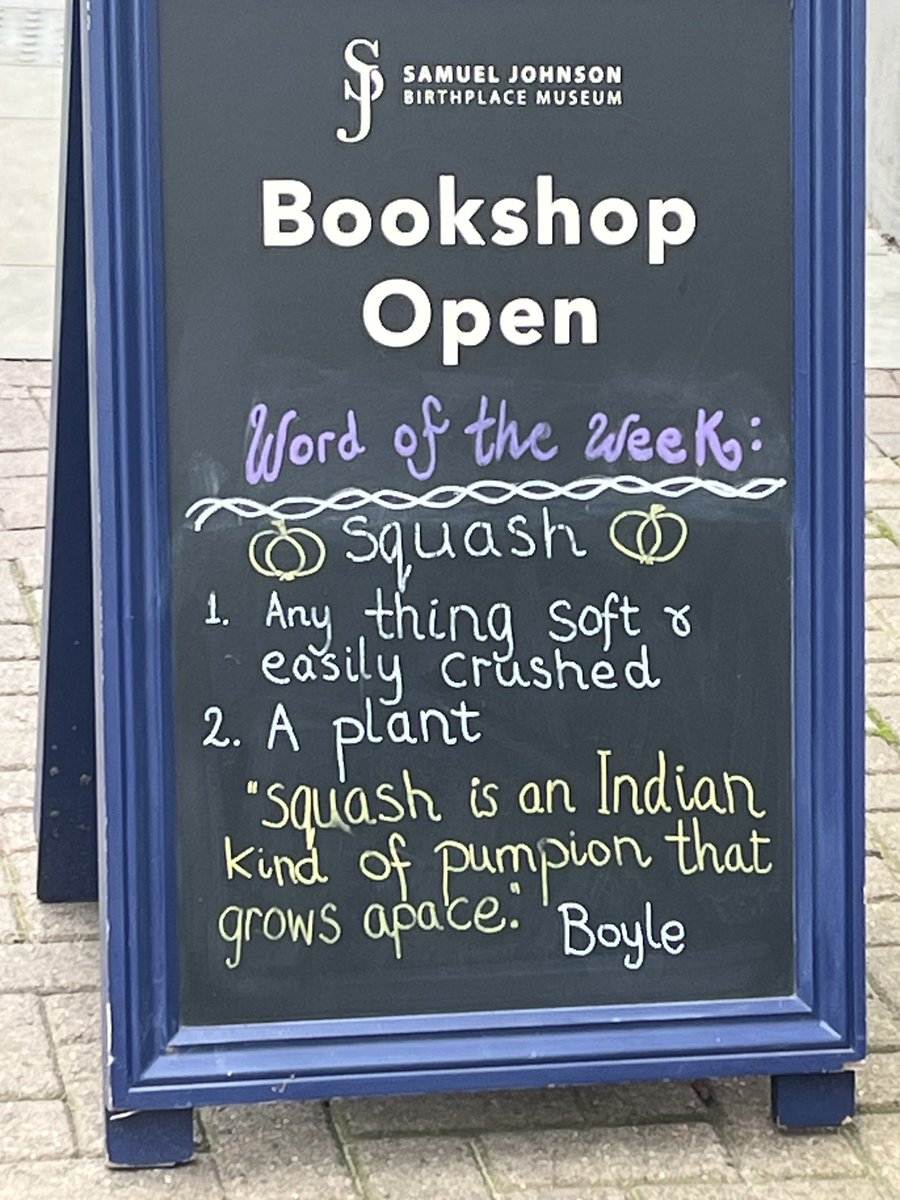 SJ SAMUEL JOHNSON
BIRTHPLACE MUSEUM
Bookshop
Open
Word of the Week:
Squash
1. Any thing soft &
easily crushed
2. A plant
"Squash is an Indian
kind of pumpion that
grows apace."
Boyle